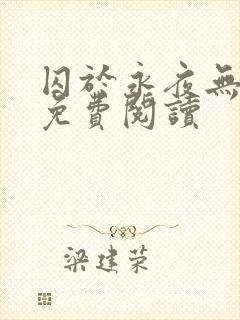 囚於永夜無
免費閱讀
梁建荣